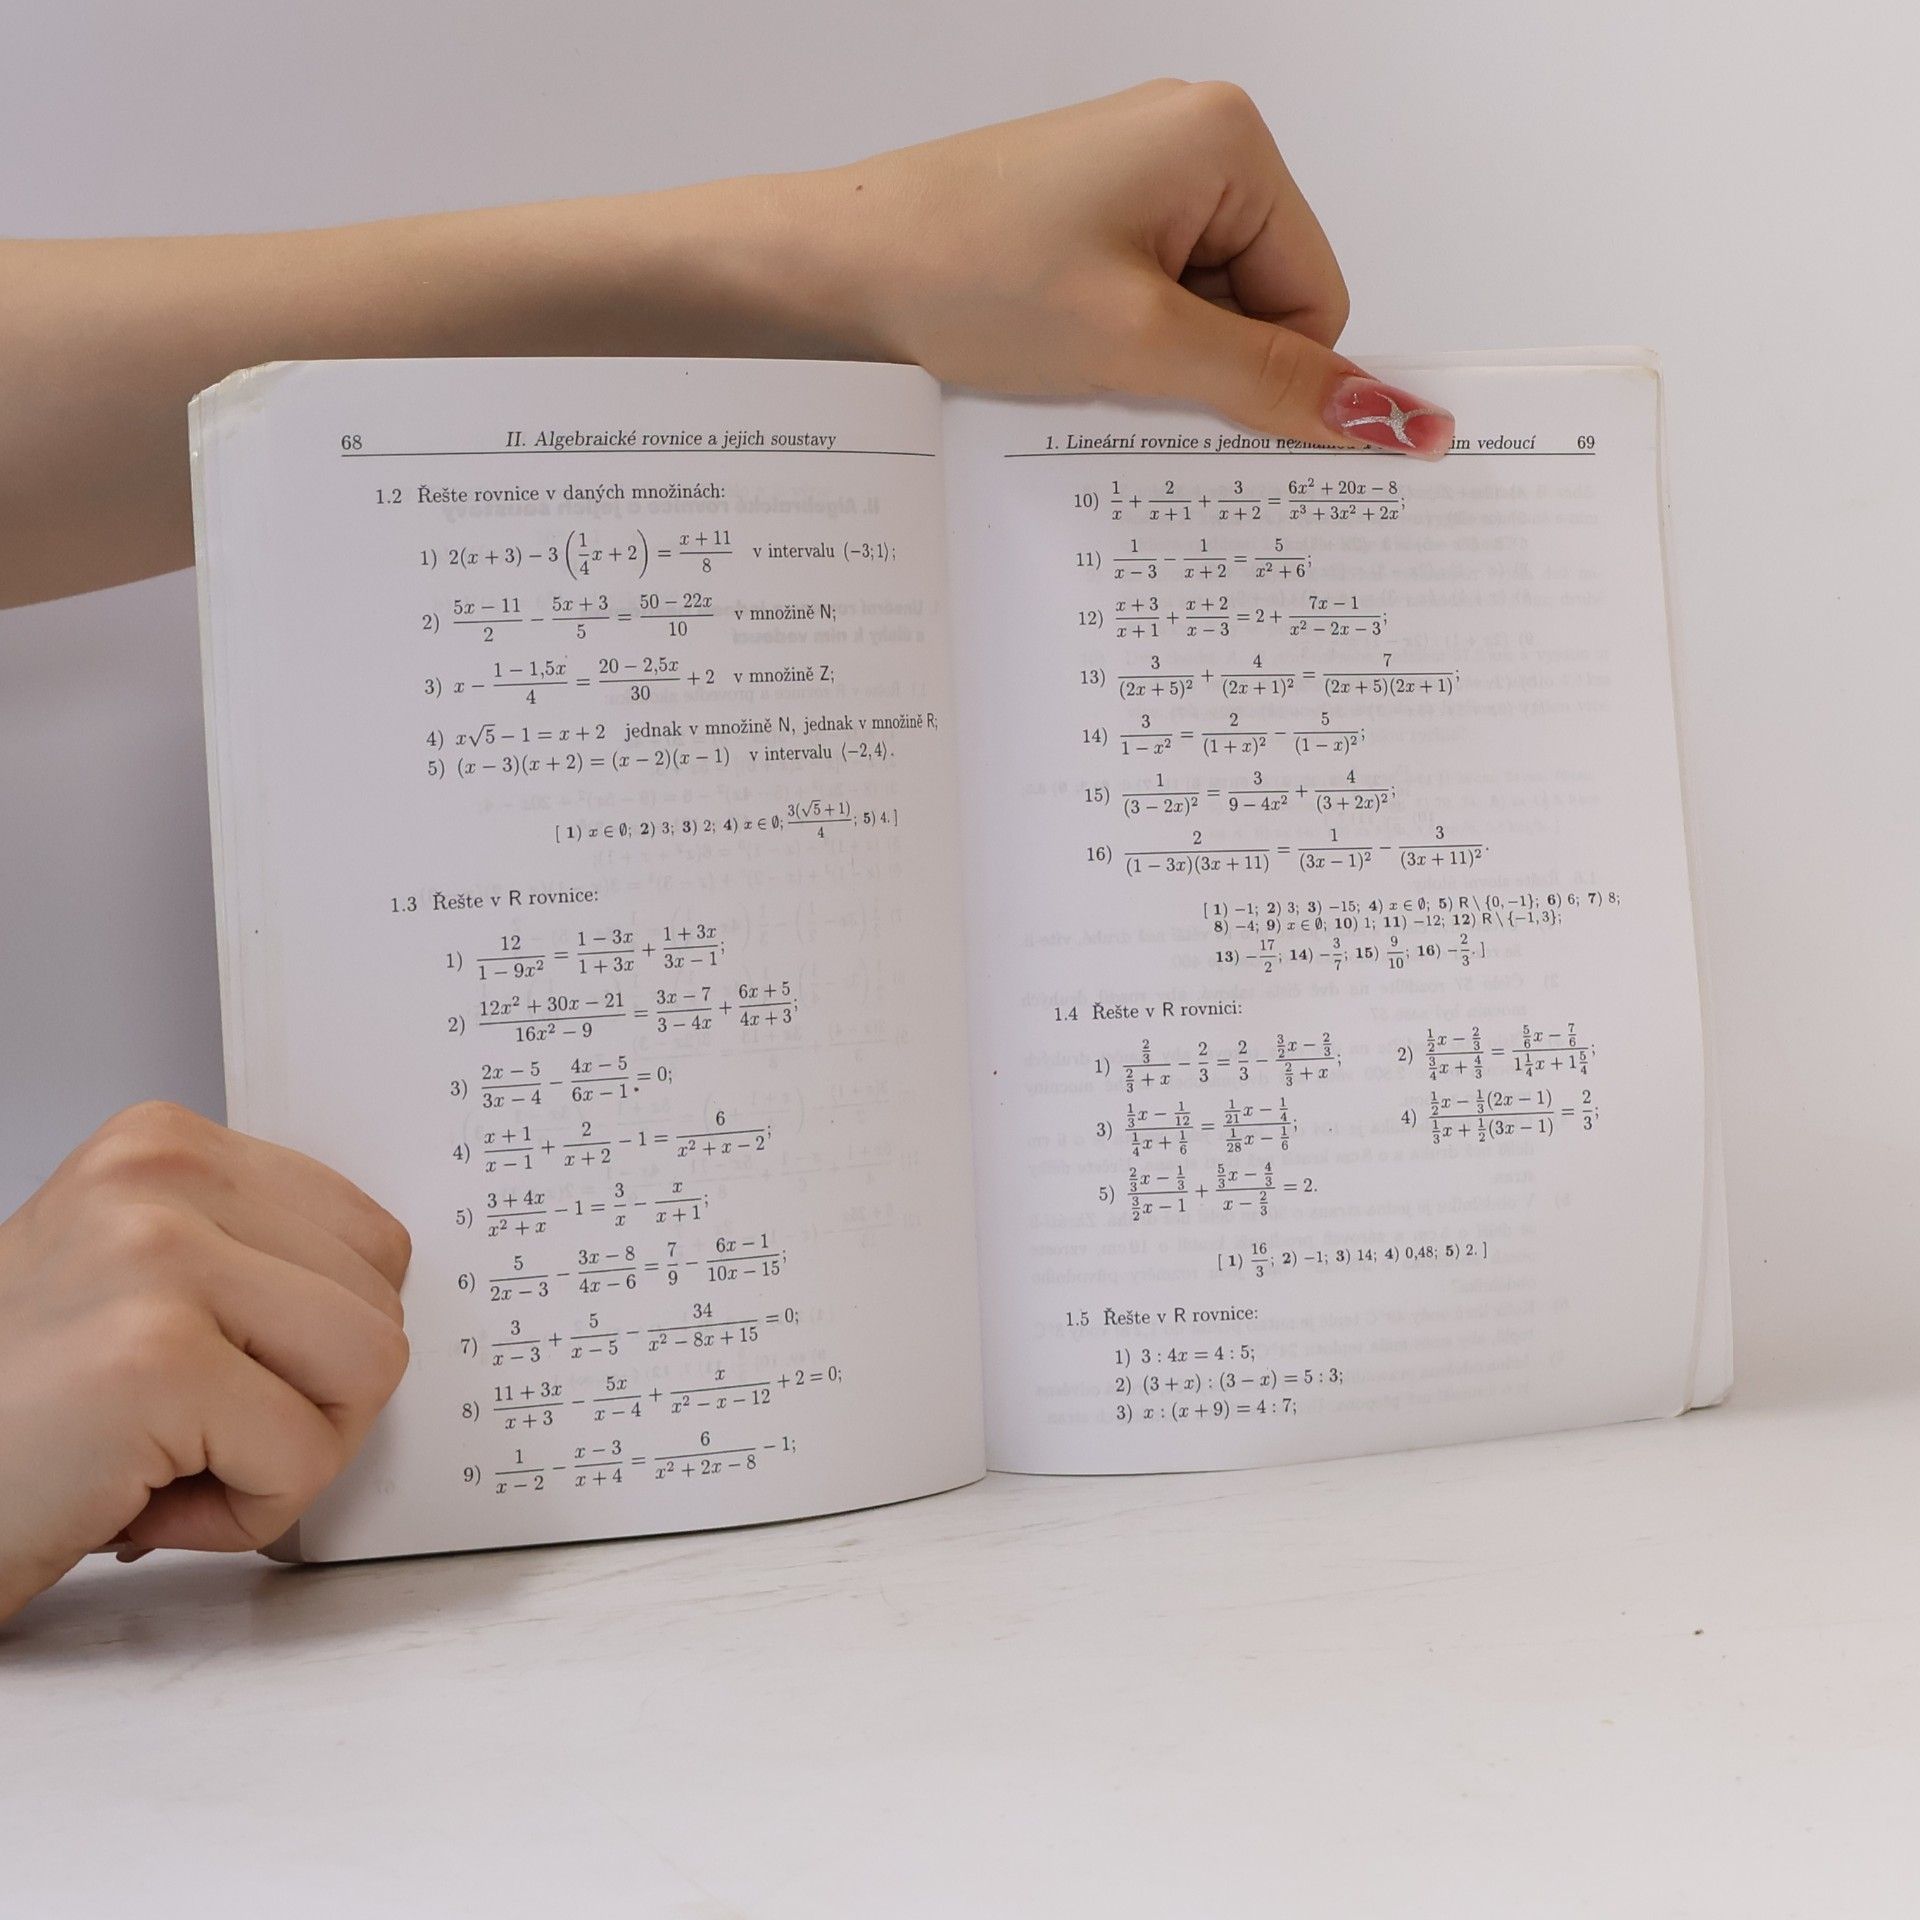 68 II. Algebraické rovnice a jejich soustavy
1.2 Řešte rovnice v daných množinách:
1) 2(x + 3) − 3(1/4 x + 2) = (x + 11)/8 v intervalu (−3; 1⟩;
2) (5x − 11)/2 − (5x + 3)/5 = (50 − 22x)/10 v množině N;
3) x − (1 − 1,5x)/4 = (20 − 2,5x)/30 + 2 v množině Z;
4) x√5 − 1 = x + 2 jednak v množině N, jednak v množině R;
5) (x − 3)(x + 2) = (x − 2)(x − 1) v intervalu ⟨−2, 4⟩.
[ 1) x ∈ ∅; 2) 3; 3) 2; 4) x ∈ ∅; 3(√5 + 1)/4; 5) 4. ]
1.3 Řešte v R rovnice:
1) 12/(1 − 9x²) = (1 − 3x)/(1 + 3x) + (1 + 3x)/(3x − 1);
2) (12x² + 30x − 21)/(16x² − 9) = (3x − 7)/(3 − 4x) + (6x + 5)/(4x + 3);
3) (2x − 5)/(3x − 4) − (4x − 5)/(6x − 1) = 0;
4) (x + 1)/(x − 1) + 2/(x + 2) − 1 = 6/(x² + x − 2);
5) (3 + 4x)/(x² + x) − 1 = 3/x − x/(x + 1);
6) 5/(2x − 3) − (3x − 8)/(4x − 6) = 7/9 − (6x − 1)/(10x − 15);
7) 3/(x − 3) + 5/(x − 5) − 34/(x² − 8x + 15) = 0;
8) (11 + 3x)/(x + 3) − 5x/(x − 4) + x/(x² − x − 12) + 2 = 0;
9) 1/(x − 2) − (x − 3)/(x + 4) = 6/(x² + 2x − 8) − 1;
1. Lineární rovnice s jednou vedoucí 69
10) 1/x + 2/(x + 1) + 3/(x + 2) = (6x² + 20x − 8)/(x³ + 3x² + 2x);
11) 1/(x − 3) − 1/(x + 2) = 5/(x² + 6);
12) (x + 3)/(x + 1) + (x + 2)/(x − 3) = 2 + (7x − 1)/(x² − 2x − 3);
13) 3/(2x + 5)² + 4/(2x + 1)² = 7/((2x + 5)(2x + 1));
14) 3/(1 − x²) = 2/(1 + x)² − 5/(1 − x)²;
15) 1/(3 − 2x)² = 3/(9 − 4x²) + 4/(3 + 2x)²;
16) 2/((1 − 3x)(3x + 11)) = 1/(3x − 1)² − 3/(3x + 11)².
[ 1) −1; 2) 3; 3) −15; 4) x ∈ ∅; 5) R \ {0, −1}; 6) 6; 7) 8;
8) −4; 9) x ∈ ∅; 10) 1; 11) −12; 12) R \ {−1, 3};
13) −17/2; 14) −3/7; 15) 9/10; 16) −2/3. ]
1.4 Řešte v R rovnici:
1) (2/3)/(2/3 + x) − 2/3 = 2/3 − (3/2 x − 2/3)/(2/3 + x); 2) (1/2 x − 2/3)/(3/4 x + 4/3) = (5/6 x − 7/6)/(1 1/4 x + 1 5/4);
3) (1/3 x − 1/12)/(1/4 x + 1/6) = (1/21 x − 1/4)/(1/28 x − 1/6); 4) (1/2 x − 1/3(2x − 1))/(1/3 x + 1/2(3x − 1)) = 2/3;
5) (2/3 x − 1/3)/(3/2 x − 1) + (5/3 x − 4/3)/(x − 2/3) = 2.
[ 1) 16/3; 2) −1; 3) 14; 4) 0,48; 5) 2. ]
1.5 Řešte v R rovnice:
1) 3 : 4x = 4 : 5;
2) (3 + x) : (3 − x) = 5 : 3;
3) x : (x + 9) = 4 : 7;